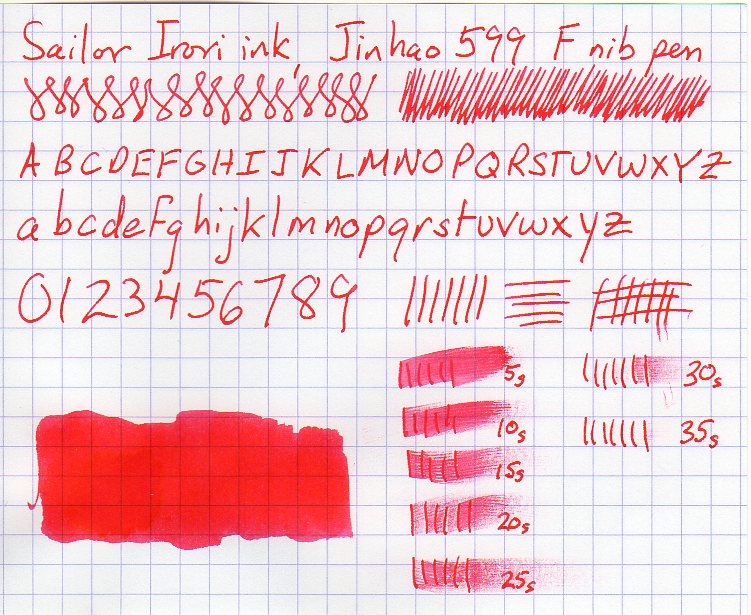 Sailor Irori ink, Jinhao 599 F nib pen
A B C D E F G H I J K L M N O P Q R S T U V W X Y Z
a b c d e f g h i j k l m n o p q r s t u v w x y z
0 1 2 3 4 5 6 7 8 9
5s
10s
15s
20s
25s
30s
35s